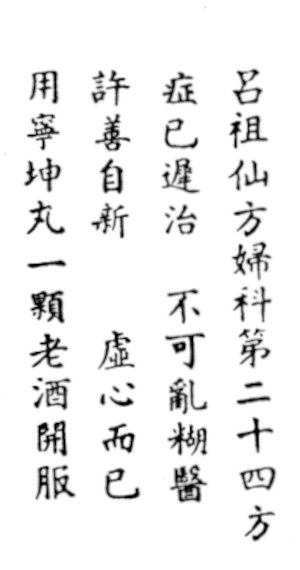 呂祖仙方婦科第二十四方
症已遲治　不可亂糊醫
許善自新　虛心而已
用寧坤丸一顆老酒開服